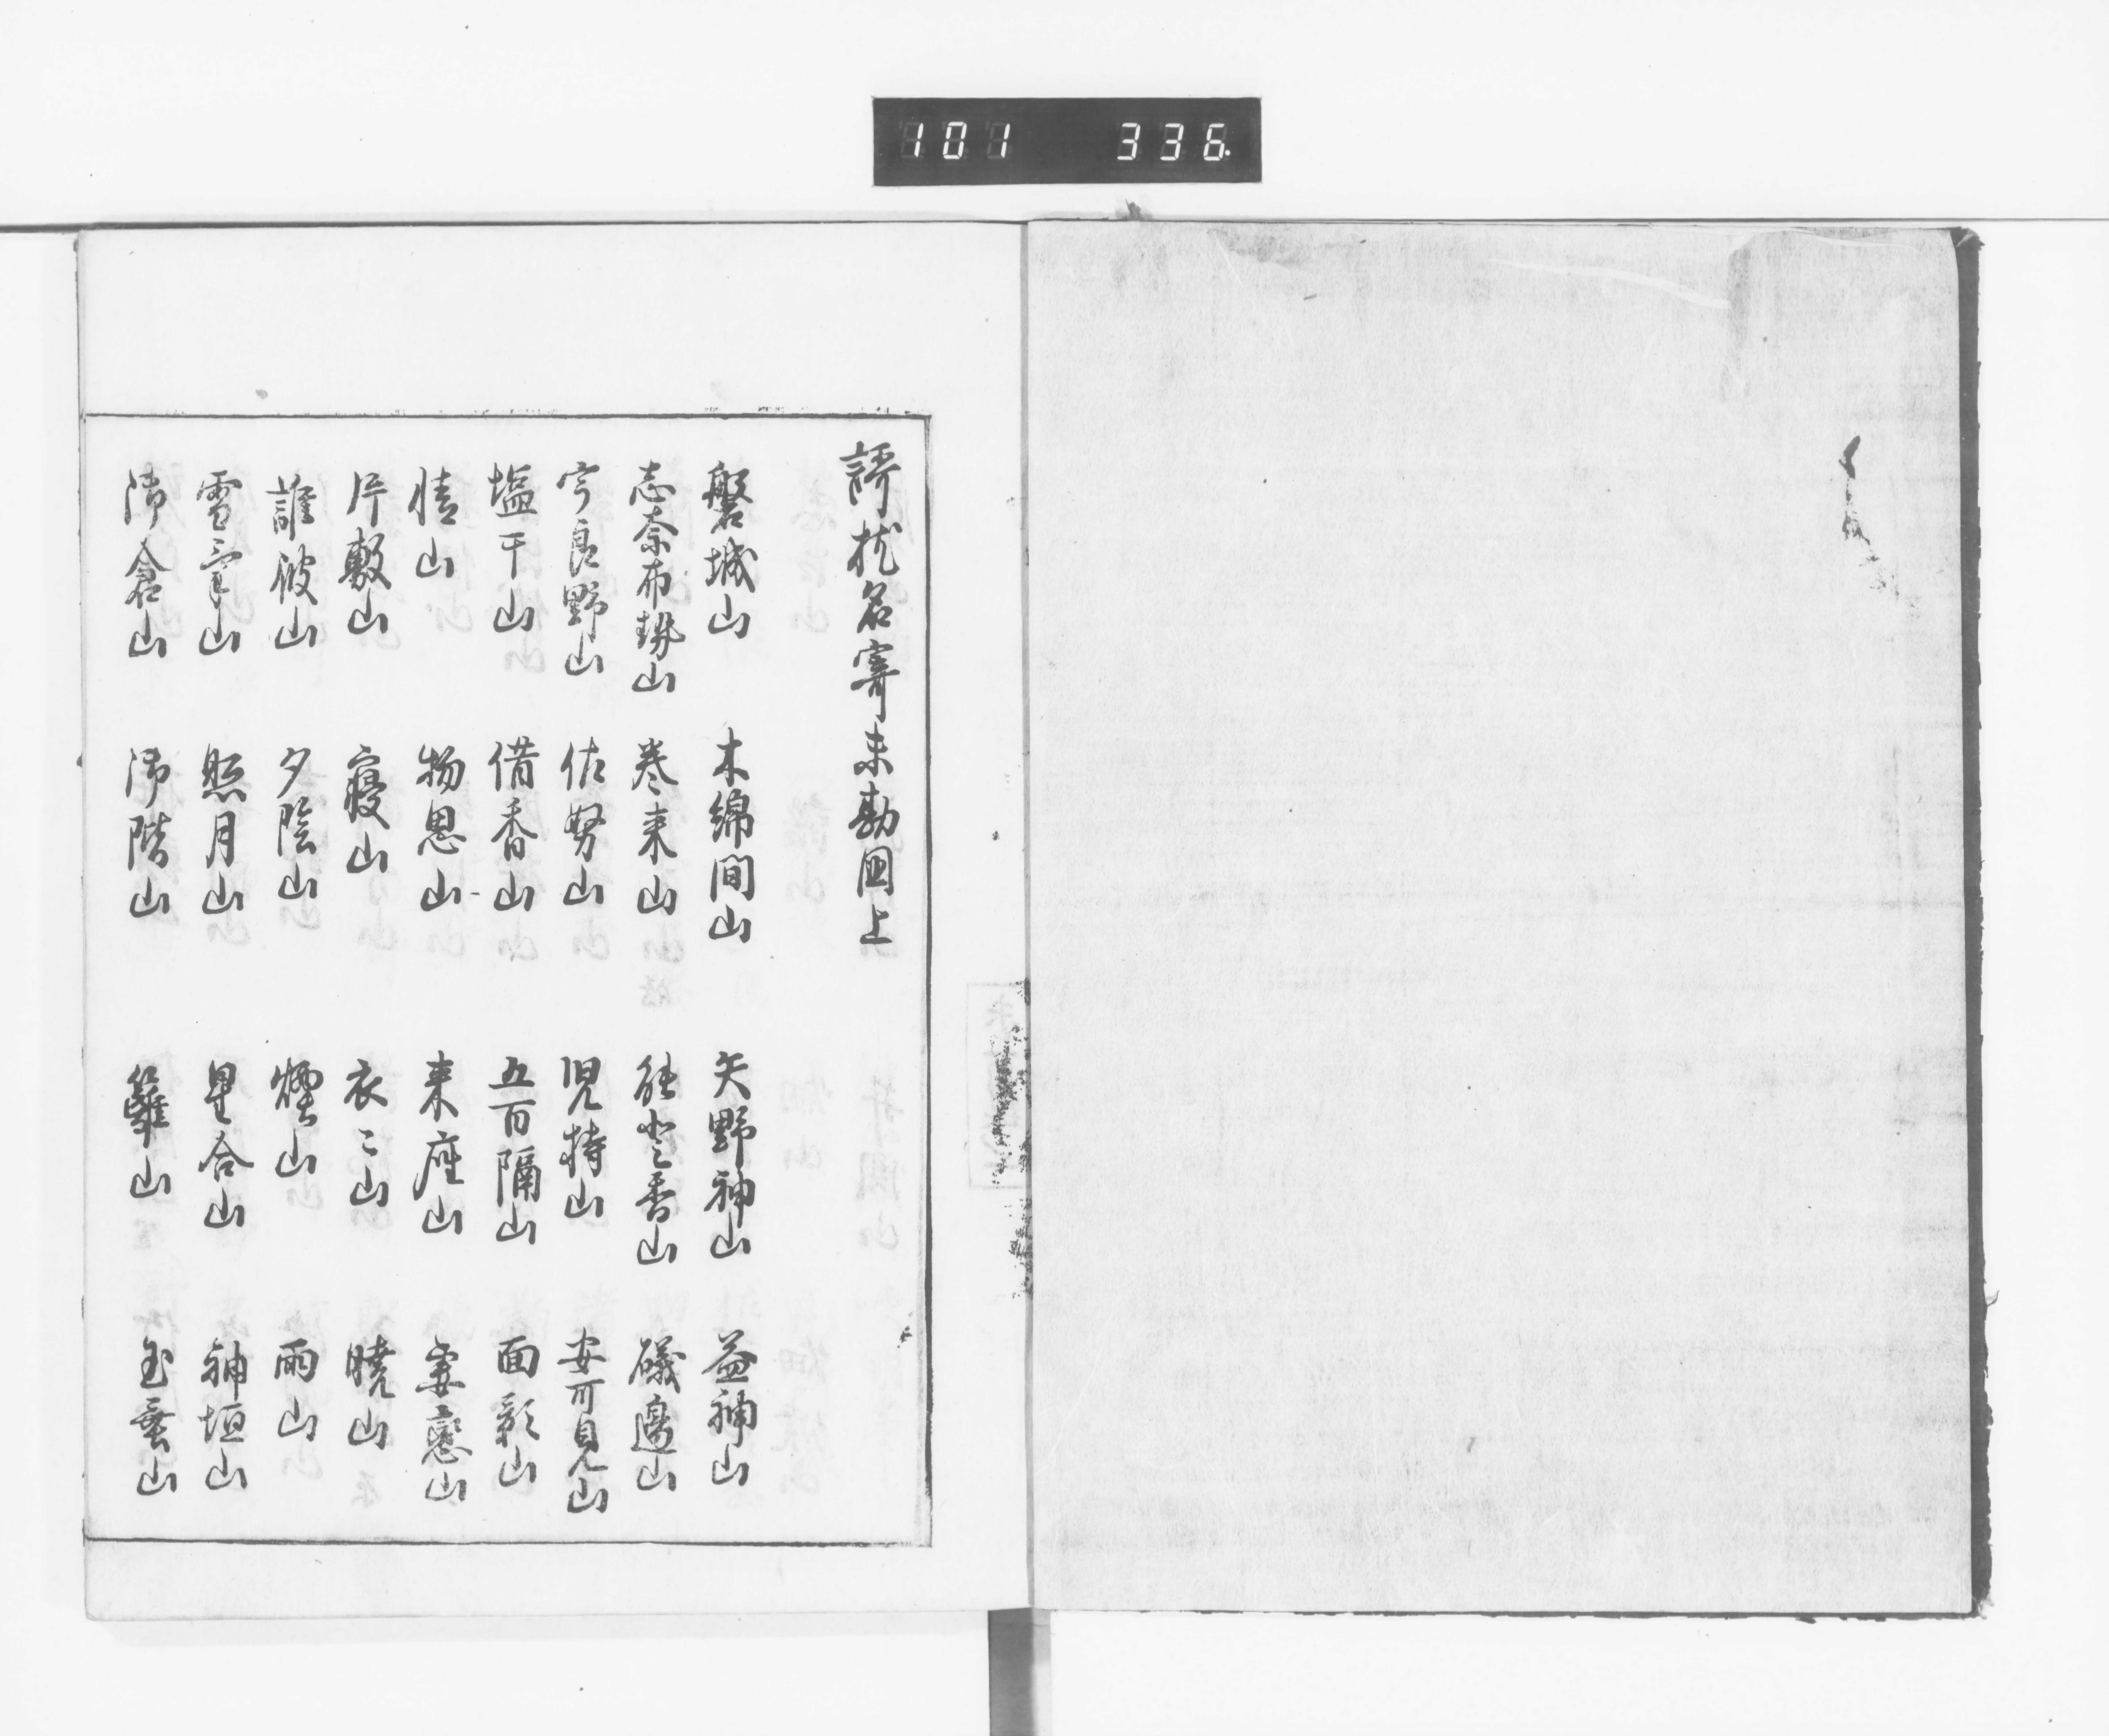 101 336
謌枕名寄未勘国上
磐城山 木綿間山 矢野神山 益神山
志奈布勢山 巻来山 能登香山 礒邊山
宇良野山 佐努山 児持山 安可見山
塩干山 借香山 五百隔山 面影山
情山 物思山 来座山 妻恋山
片敷山 寝山 衣ミ山 暁山
誰彼山 夕陰山 煙山 雨山
雪山 照月山 星合山 神垣山
御倉山 御階山 籬山 山